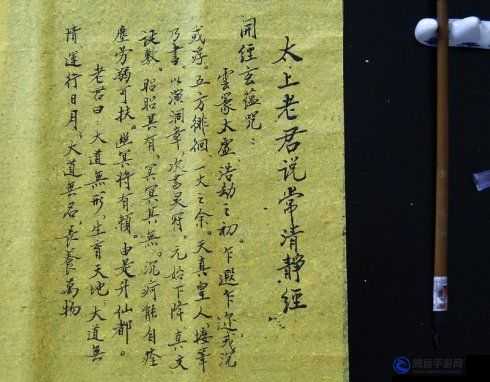 太上老君说常清静經
開經玄蘊咒：
雲篆太虛浩劫之初。乍遐乍迩或沉
或浮。五方徘徊一丈之余。天真皇人按筆
乃書。以演洞章次書灵符。元始下降真文
诞敷。昭昭其有冥冥其無。沉疴能自痊
塵劳溺可扶。幽冥将有賴。由是升仙都。
老君曰大道無形生育天地大道無
情運行日月大道無名長養萬物